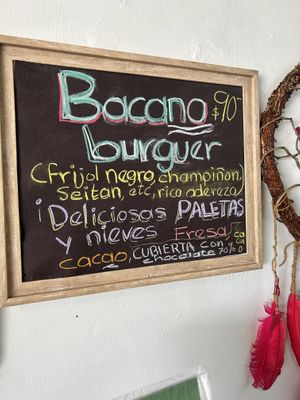 Bacano $90
burguer
(Frijol negro, champiñon,
Seitan, etc, rico aderezo)
¡Deliciosas PALETAS
y nieves Fresa/
cacao, CUBIERTA CON
chocolate 70%